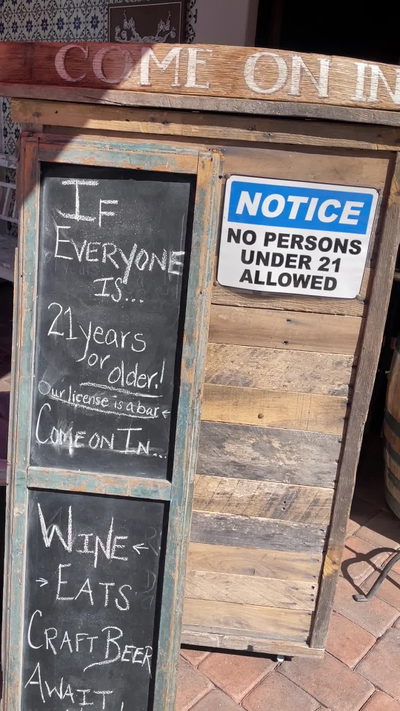 COME ON IN
IF
EVERYONE
IS...
21 years
or older!
Our license is a bar
COME ON IN...
WINE
EATS
CRAFT BEER
AWAIT
NOTICE
NO PERSONS
UNDER 21
ALLOWED